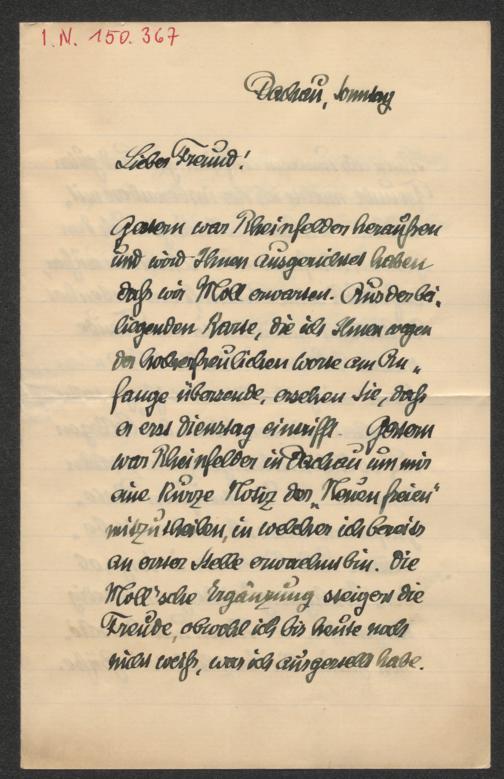 I.N. 150.367
Dachau, Sonntag
Lieber Freund!
Gestern war Rheinfelder heraußen
und wird Ihnen ausgerichtet haben
daß wir Moll erwarten. Aus der bei„
liegenden Karte, die ich Ihnen wegen
der hocherfreulichen Worte am An„
fange übersende, ersehen Sie, daß
er erst Dienstag eintrifft. Gestern
war Rheinfelder in Dachau um mir
eine kurze Notiz der „Neuen freien“
mitzutheilen, in welcher ich bereits
an erster Stelle erwaehnt bin. Die
Moll'sche Ergänzung steigert die
Freude, obwohl ich bis heute noch
nicht weiß, was ich ausgestellt habe.